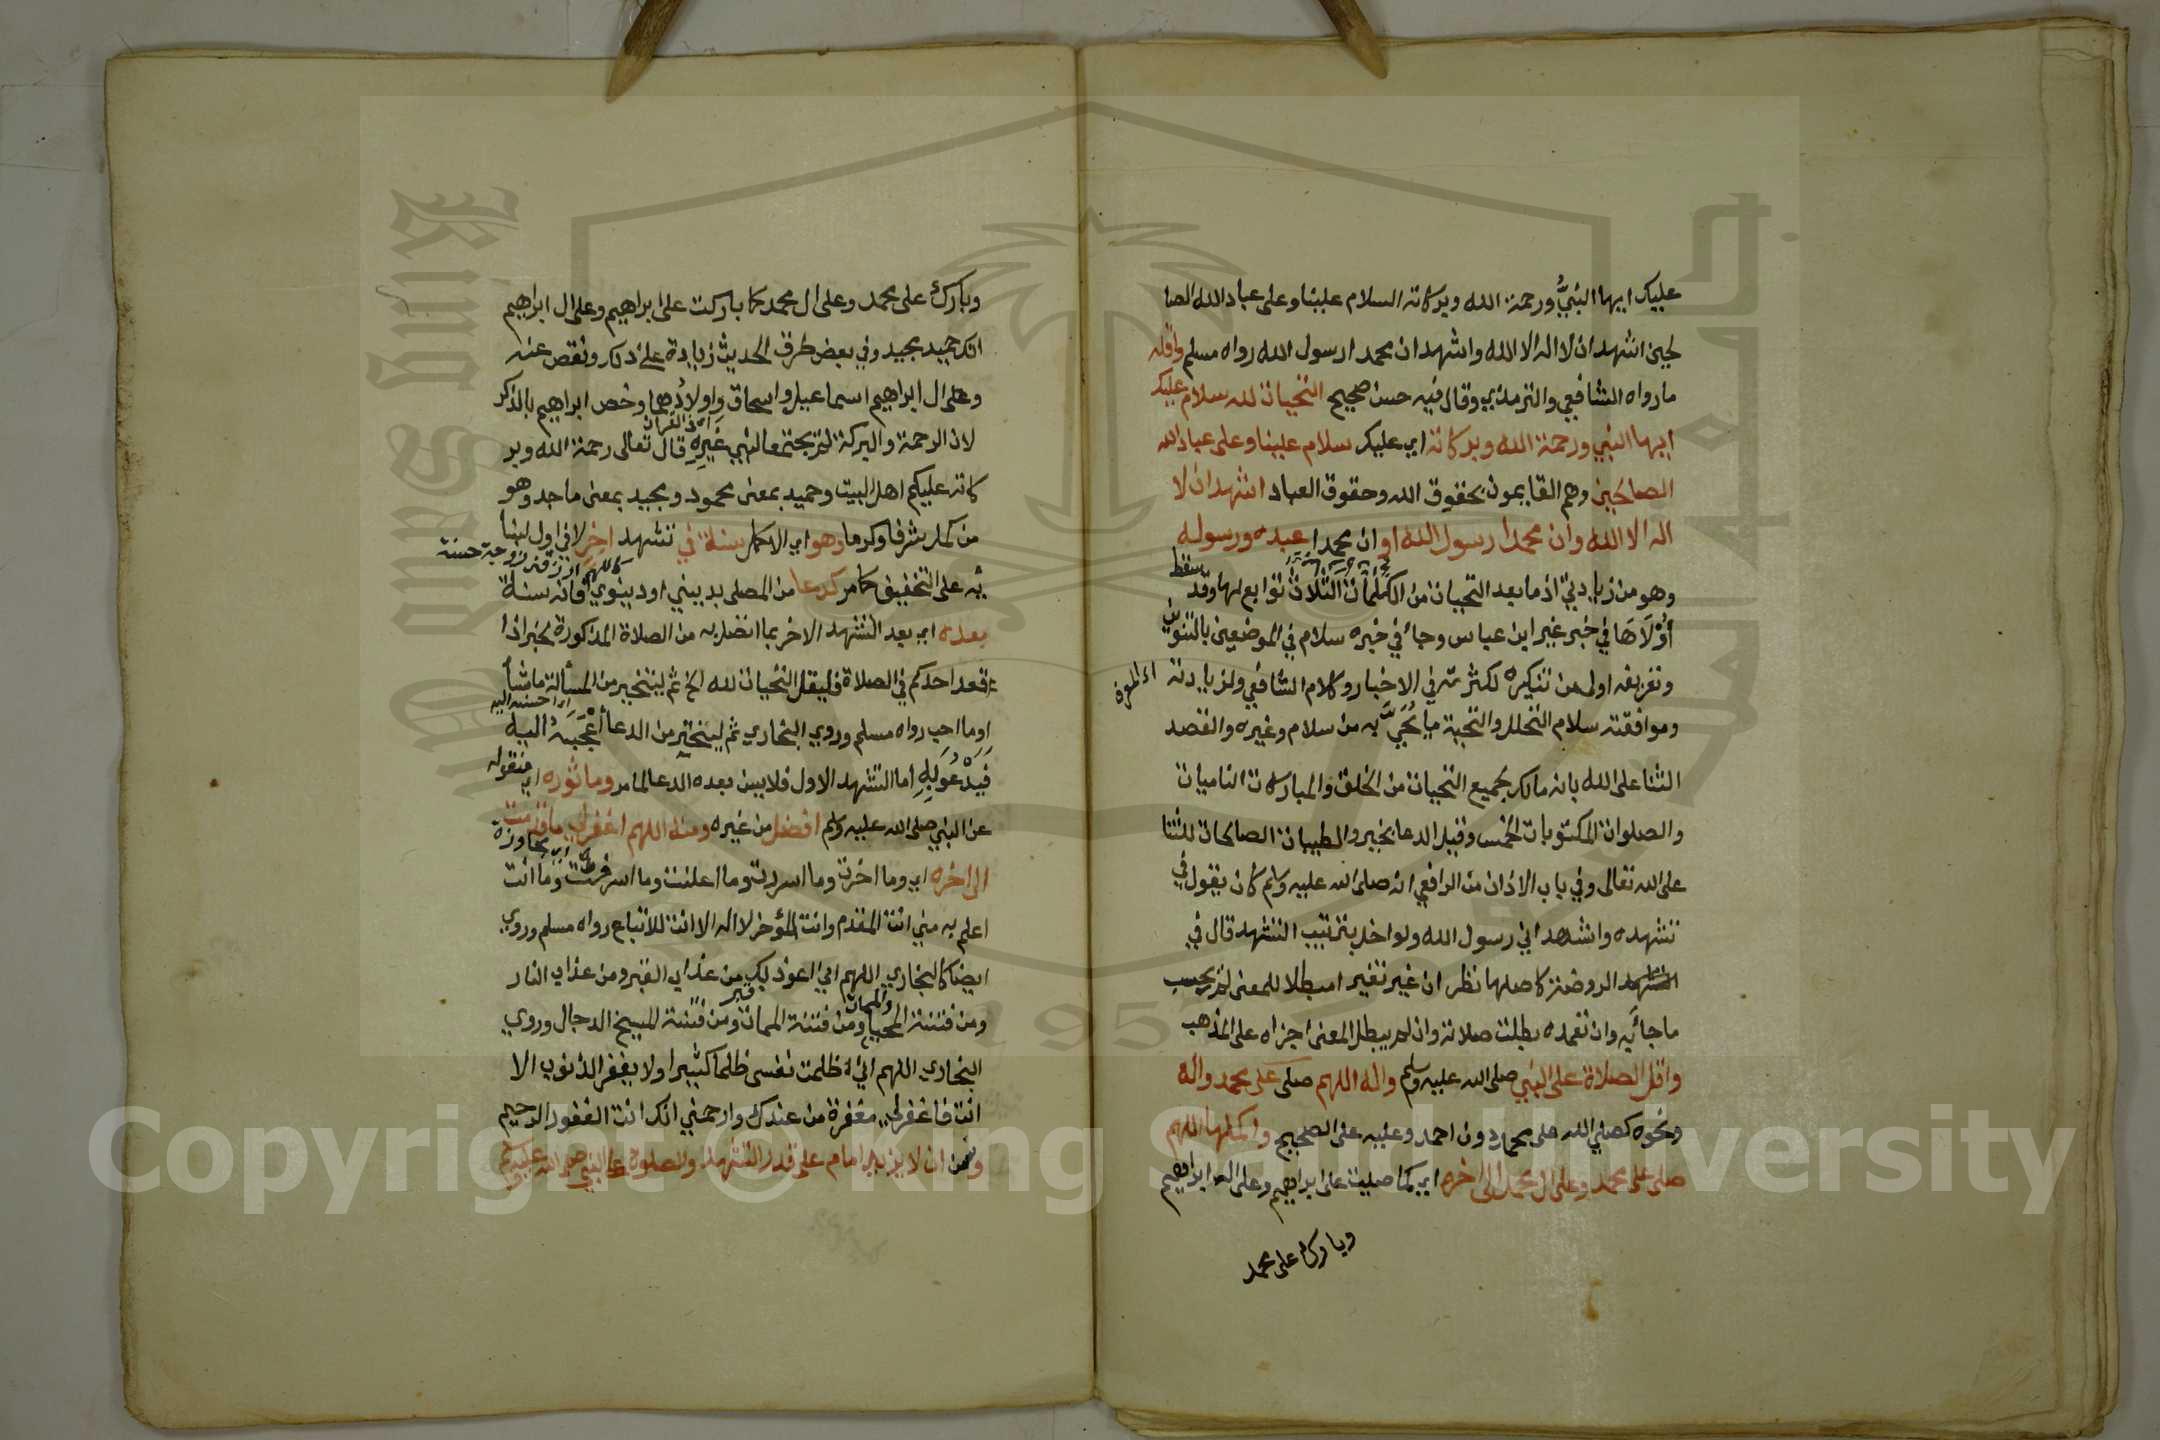 عليك ايها النبيُّ ورحمة الله وبركاته السلام علينا وعلى عباد الله الصا
لحين اشهد ان لا اله الا الله واشهد ان محمدا رسول الله رواه مسلم واقله
ما رواه الشافعي والترمذي وقال فيه حسن صحيح التحيات لله سلام عليك
ايها النبي ورحمة الله وبركاته اي عليك سلام علينا وعلى عباد الله
الصالحين وهم القايمون بحقوق الله وحقوق العباد اشهد ان لا
اله الا الله وان محمدا رسول الله او ان محمدا عبده ورسوله
وهو من زيادتي اذ ما بعد التحيات من الكلمات الثلاث توابع لها وقد سقط
أوْلَاهَا في خبر غير ابن عباس وجاء في خبره سلام في الموضعين بالتنوين
وتعريفه اولى من تنكيره لكثرته في الاخبار وكلام الشافعي ولزيادته
وموافقته سلام التحلل والتحية ما يُحَيَّ به من سلام وغيره والقصد
الثنا على الله بانه مالك لجميع التحيات من الخلق والمباركات الناميات
والصلوات المكتوبات الخمس وقيل الدعا بخير والطيبات الصالحات للثنا
على الله تعالى وفي باب الاذان من الرافعي انه صلى الله عليه وسلم كان يقول في
تشهده واشهد اني رسول الله ولو اخل بترتيب التشهد قال في
الروضة كاصلها نظر ان غير تغيير امبطلا للمعنى لم يحسب
ما جا به وان تعمده بطلت صلاته وان لم يبطل المعنى اجزاه على المذهب
واقل الصلاة على النبي صلى الله عليه وسلم واله اللهم صلى على محمد واله
ونحوه كصلى الله على محمد دون احمد وعليه على الصحيح واكملها اللهم
صلى على محمد وعلى ال محمد الى اخره اي كما صليت على ابراهيم وعلى ال ابراهيم
وبارك على محمد
وبارك على محمد وعلى ال محمد كما باركت على ابراهيم وعلى ال ابراهيم
انك حميد مجيد وفي بعض طرق الحديث زيادة على ذلك ونقص عنه
وعلى ال ابراهيم اسماعيل واسحاق واولادُهما وخص ابراهيم بالذكر
لان الرحمة والبركة لم يجتمعا لنبي غيرِهِ قال تعالى رحمة الله وبر
اي في القران
كاته عليكم اهل البيت وحميد بمعنى محمود ومجيد بمعنى ماجد وهو
من كمل شرفا وكرما وهو اي الاكمل سنة في تشهد اخر لا في اول لبنا
كاللهم ارزقني زوجة حسنة
ئه على التخفيف كما مر كدعا من المصلى بديني او دينوي فانه سنة
بعده اي بعد التشهد الاخر بما اتصل به من الصلاة المذكورة لخبر اذا
قعد احدكم في الصلاة فليقل التحيات لله الخ ثم ليتخير من المسألة ما شأ
او ما احب رواه مسلم وروي البخاري ثم ليتخير من الدعا أعْجَبَهُ اليه
فيدْعُوَ بِهِ اما التشهد الاول فلا يسن بعده الدعا لما مر وماثوره اي منقوله
عن النبي صلى الله عليه وسلم افضل من غيره ومنه اللهم اغفر لي ما قدمت
الى اخره اي وما اخرت وما اسررت وما اعلنت وما اسرفت وما انت
اعلم به مني انت المقدم وانت المؤخر لا اله الا انت للاتباع رواه مسلم وروي
ايضا كالبخاري اللهم اني اعوذ بك من عذاب القبر ومن عذاب النار
ومن فتنة المحيا ومن فتنة الممات ومن فتنة المسيح الدجال وروي
البخاري اللهم اني ظلمت نفسي ظلما كثيرا ولا يغفر الذنوب الا
انت فاغفرلي مغفرة من عندك وارحمني انك انت الغفور الرحيم
وسن ان لا يزيد امام على قدر التشهد والصلوة على النبي صلى الله عليه وسلم
Copyright © King Saud University